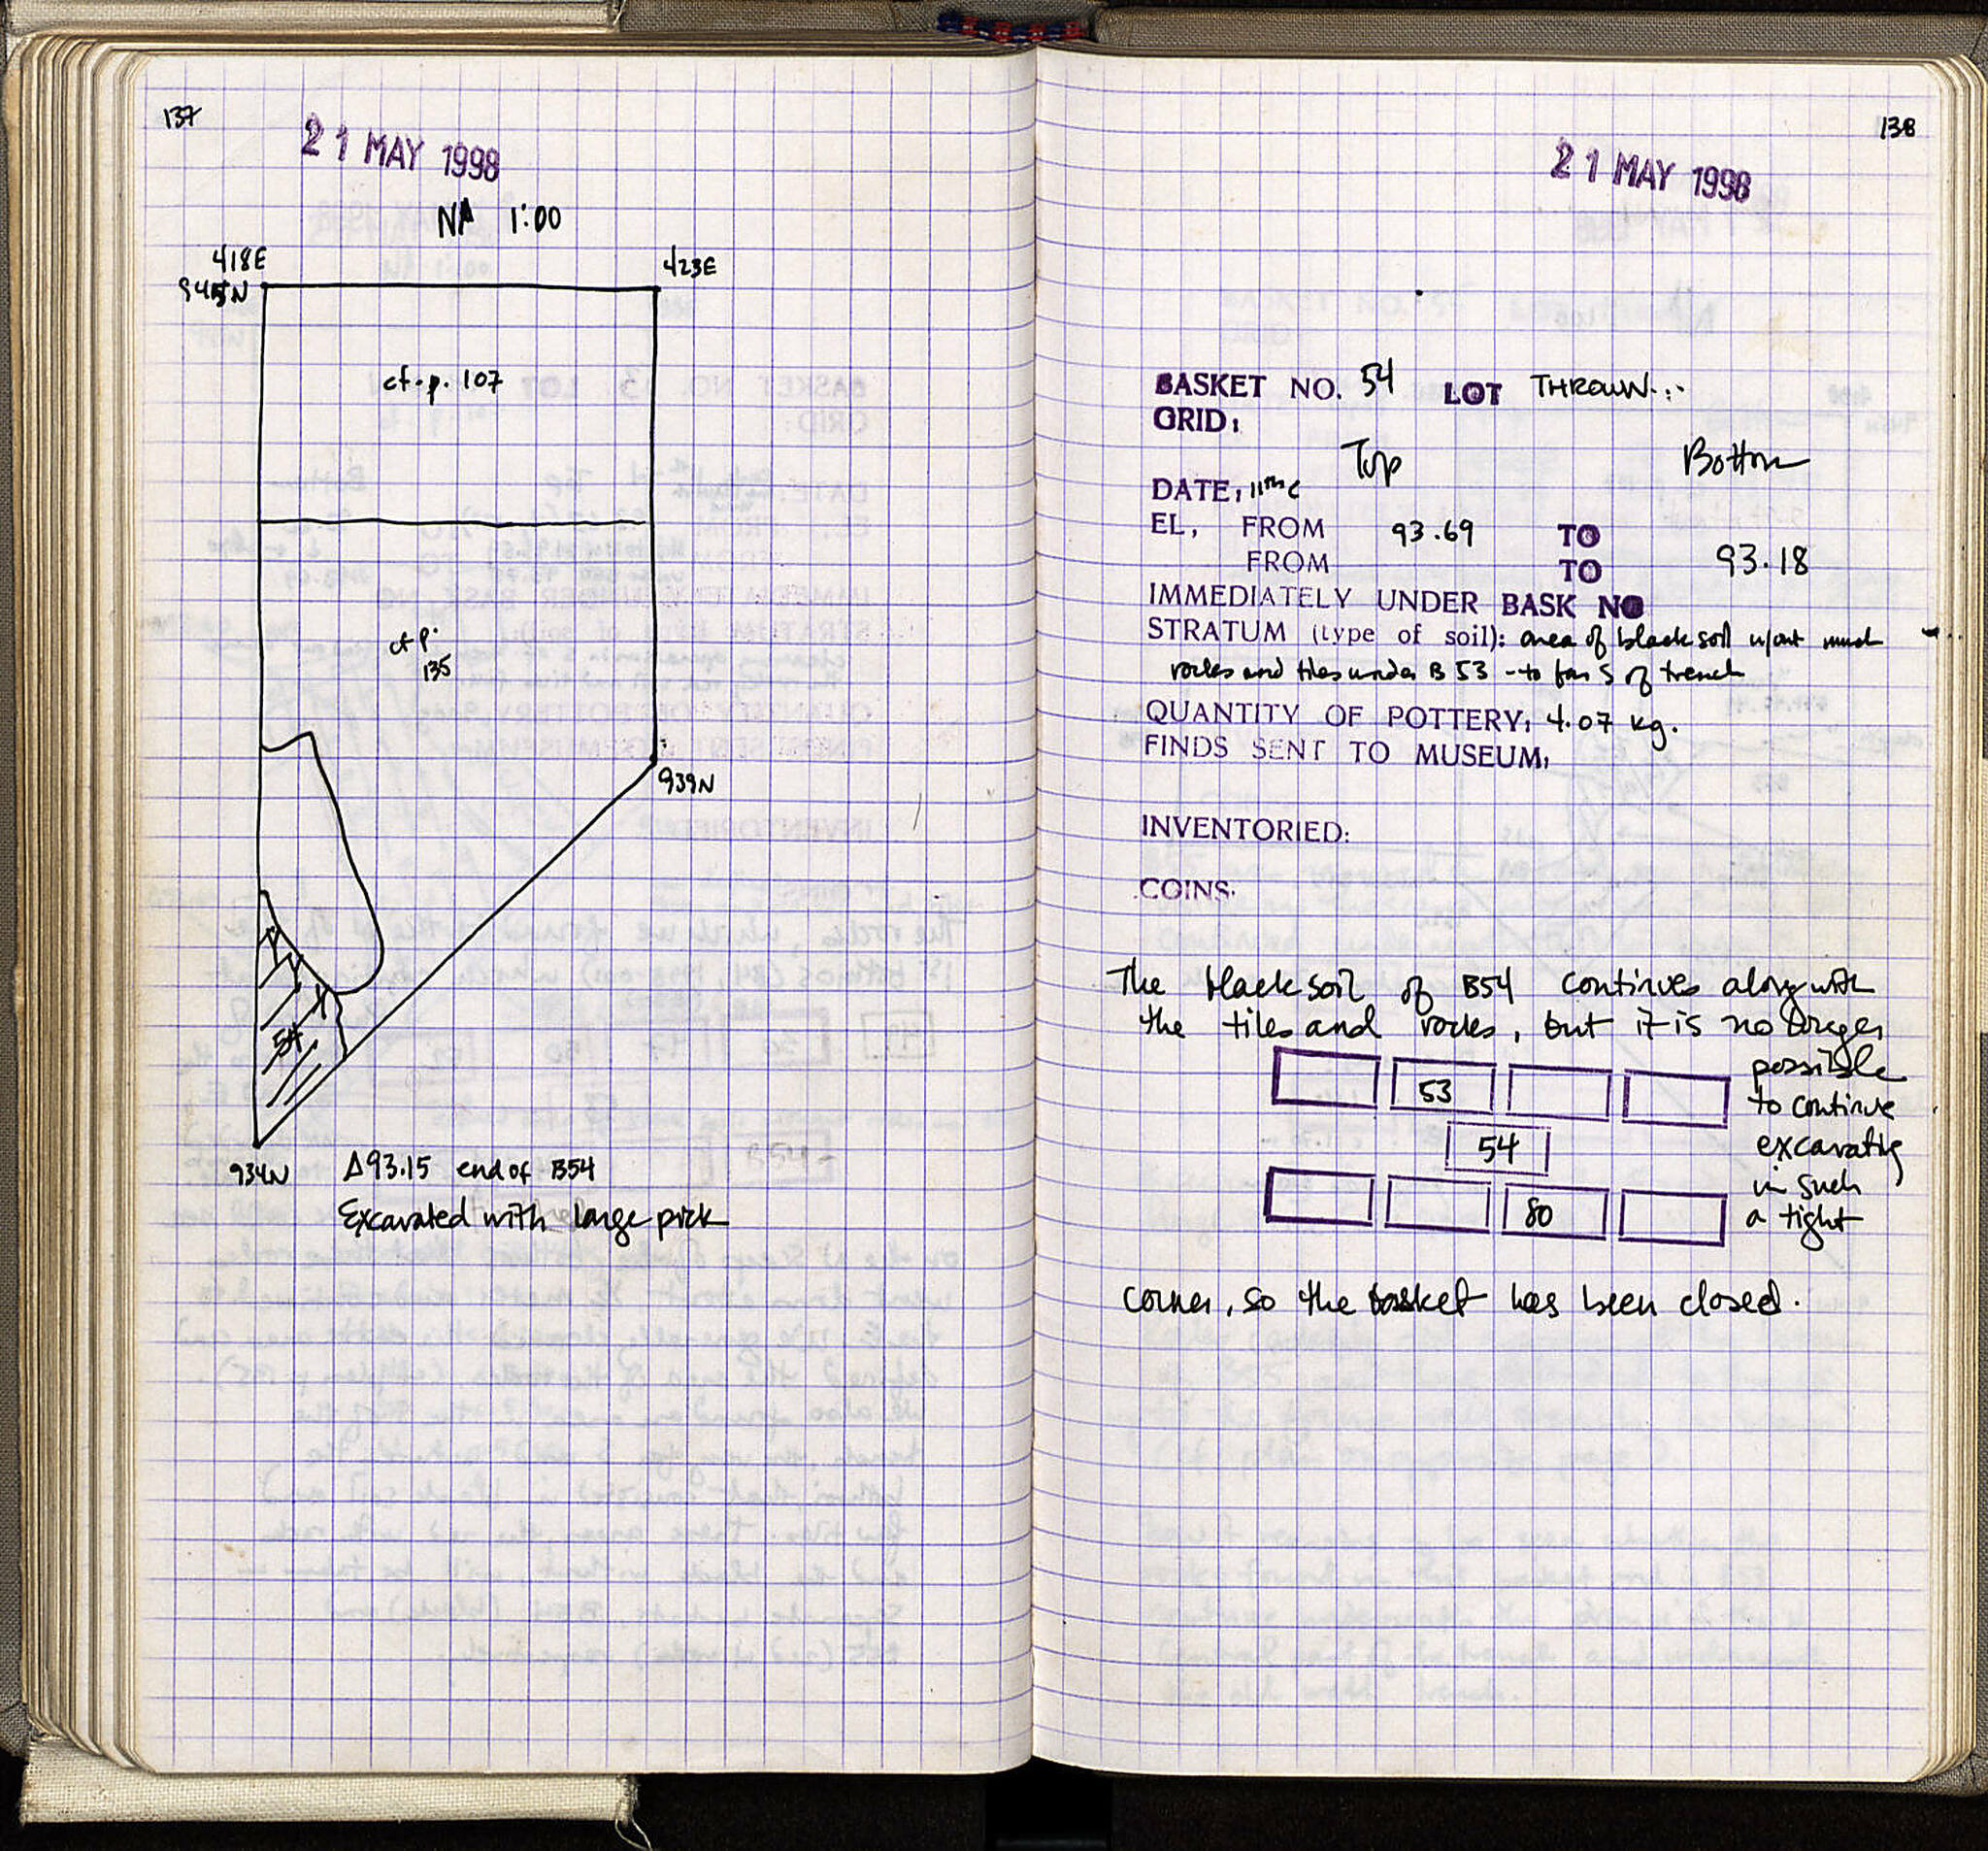 137
21 MAY 1998
N 1:00
418E
423E
945N
cf. p. 107
cf p.
135
939N
54
934N
Δ93.15 end of B54
Excavated with large pick
138
21 MAY 1998
BASKET NO. 54 LOT THROWN...
GRID:
Top Bottom
DATE: 11th c
EL, FROM 93.69 TO
FROM TO 93.18
IMMEDIATELY UNDER BASK NO
STRATUM (type of soil): area of black soil w/out much
rocks and tiles under B 53 - to far S of trench
QUANTITY OF POTTERY: 4.07 kg.
FINDS SENT TO MUSEUM:
INVENTORIED:
COINS:
The black soil of B54 continues along with
the tiles and rocks, but it is no longer
possible
53
to continue
54
excavating
in such
80
a tight
corner, so the basket has been closed.